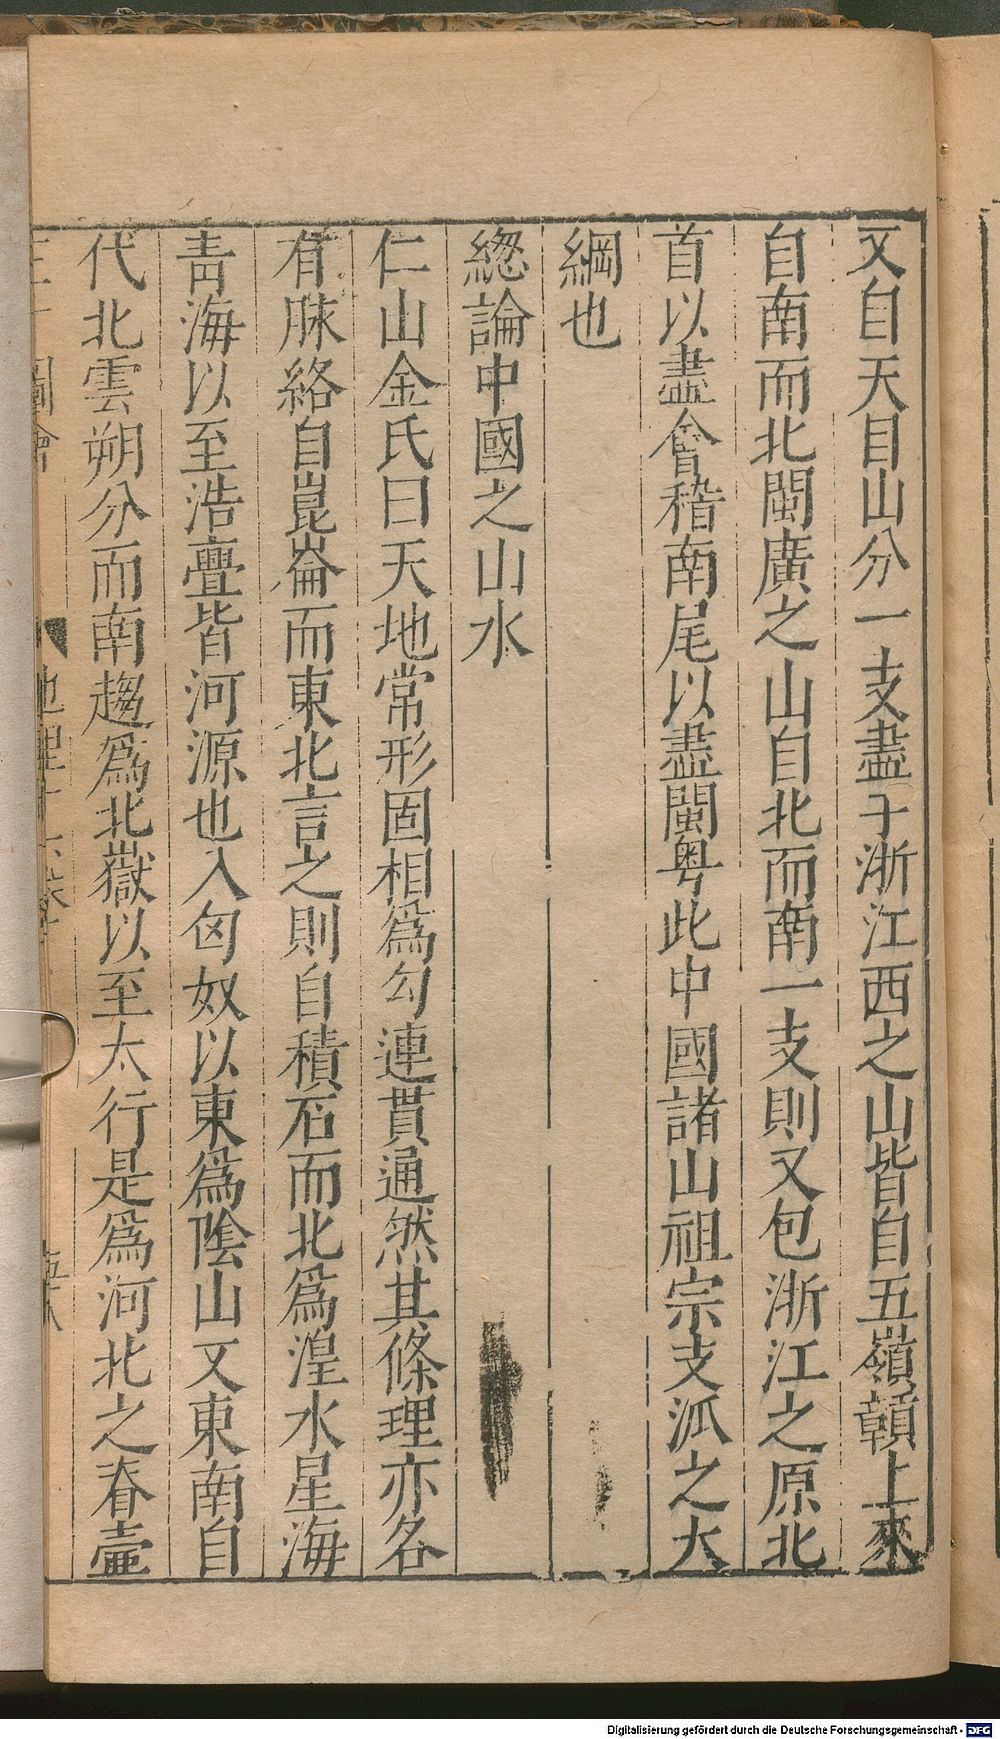 又自天目山分一支盡于浙江西之山皆自五嶺贛上來
自南而北閩廣之山自北而南一支則又包浙江之原北
首以盡會稽南尾以盡閩粤此中國諸山祖宗支派之大
綱也
總論中國之山水
仁山金氏曰天地常形固相爲勾連貫通然其條理亦名
有脉絡自崑崙而東北言之則自積石而北爲湟水星海
青海以至浩亹皆河源也入匈奴以東爲陰山又東南自
代北雲朔分而南趨爲北嶽以至太行是爲河北之脊壷
圖會 地理十六卷 五八
Digitalisierung gefördert durch die Deutsche Forschungsgemeinschaft - DFG